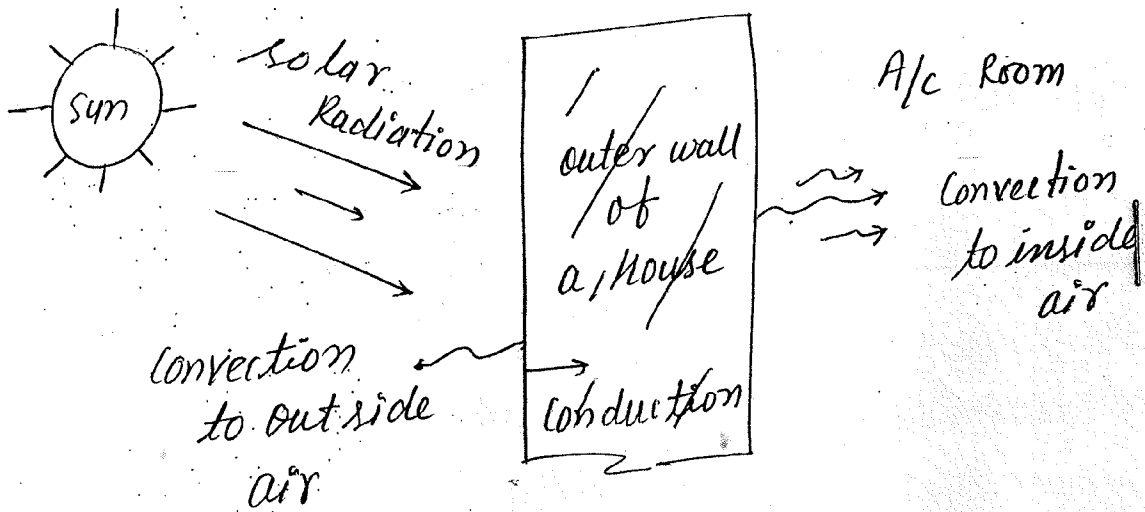 Sun
solar
Radiation
outer wall
of
a House
conduction
A/c Room
Convection
to inside
air
Convection
to outside
air